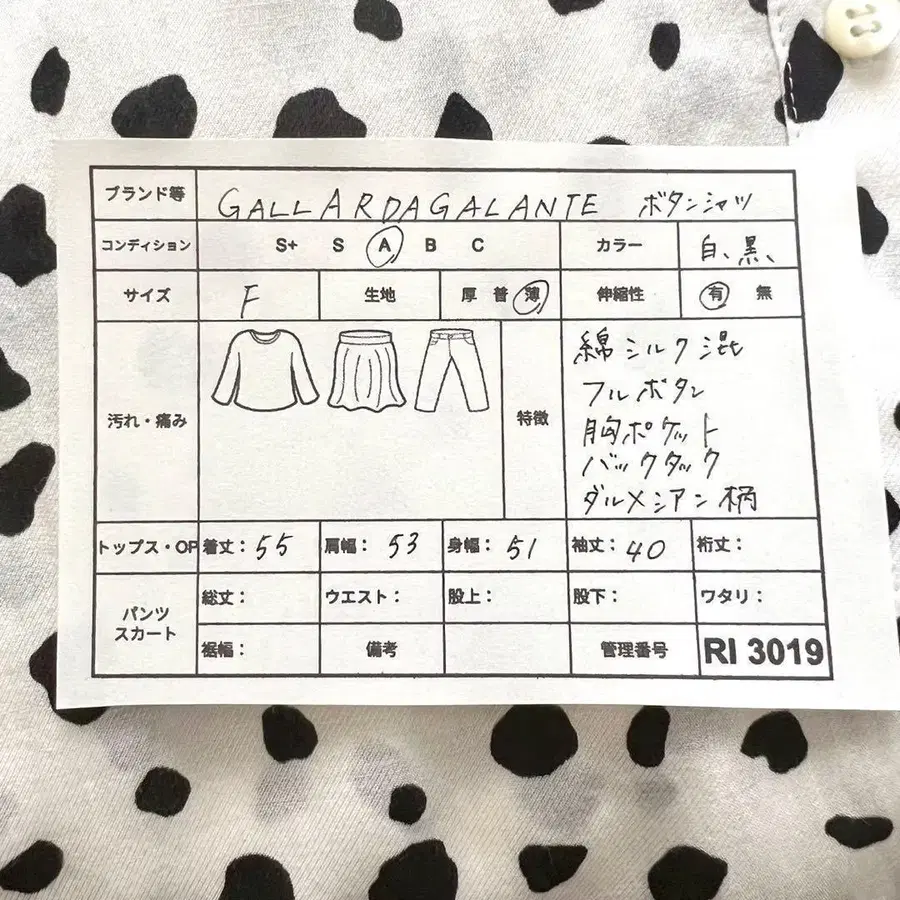 ブランド等 GALLARDAGALANTE ボタンシャツ
コンディション S+ S A B C カラー 白、黒、
サイズ F 生地 厚 普 薄 伸縮性 有 無
汚れ・痛み 特徴
綿シルク混
フルボタン
胸ポケット
バックタック
ダルメシアン柄
トップス・OP 着丈：55 肩幅：53 身幅：51 袖丈：40 裄丈：
パンツ
スカート
総丈： ウエスト： 股上： 股下： ワタリ：
裾幅： 備考 管理番号 RI 3019